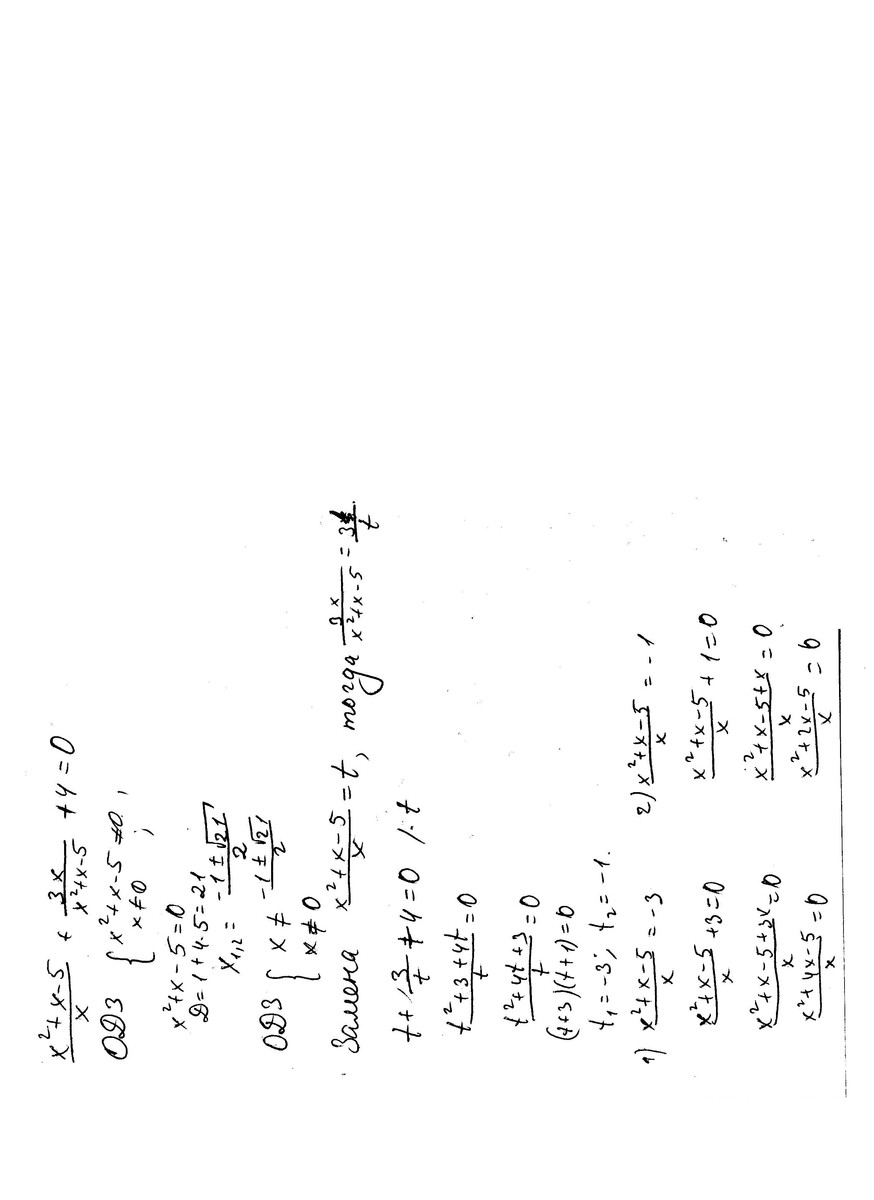 (x²+x-5)/x + 3x/(x²+x-5) + 4 = 0
ОДЗ { x²+x-5 ≠ 0,
x ≠ 0 ;
x²+x-5=0
D=1+4·5=21
x₁,₂ = (-1±√21)/2
ОДЗ { x ≠ (-1±√21)/2
x ≠ 0
Замена (x²+x-5)/x = t, тогда 3x/(x²+x-5) = 3/t.
t + 3/t + 4 = 0 /·t
(t²+3+4t)/t = 0
(t²+4t+3)/t = 0
(t+3)(t+1)=0
t₁=-3; t₂=-1.
1) (x²+x-5)/x = -3
(x²+x-5)/x + 3 = 0
(x²+x-5+3x)/x = 0
(x²+4x-5)/x = 0
2) (x²+x-5)/x = -1
(x²+x-5)/x + 1 = 0
(x²+x-5+x)/x = 0
(x²+2x-5)/x = 0